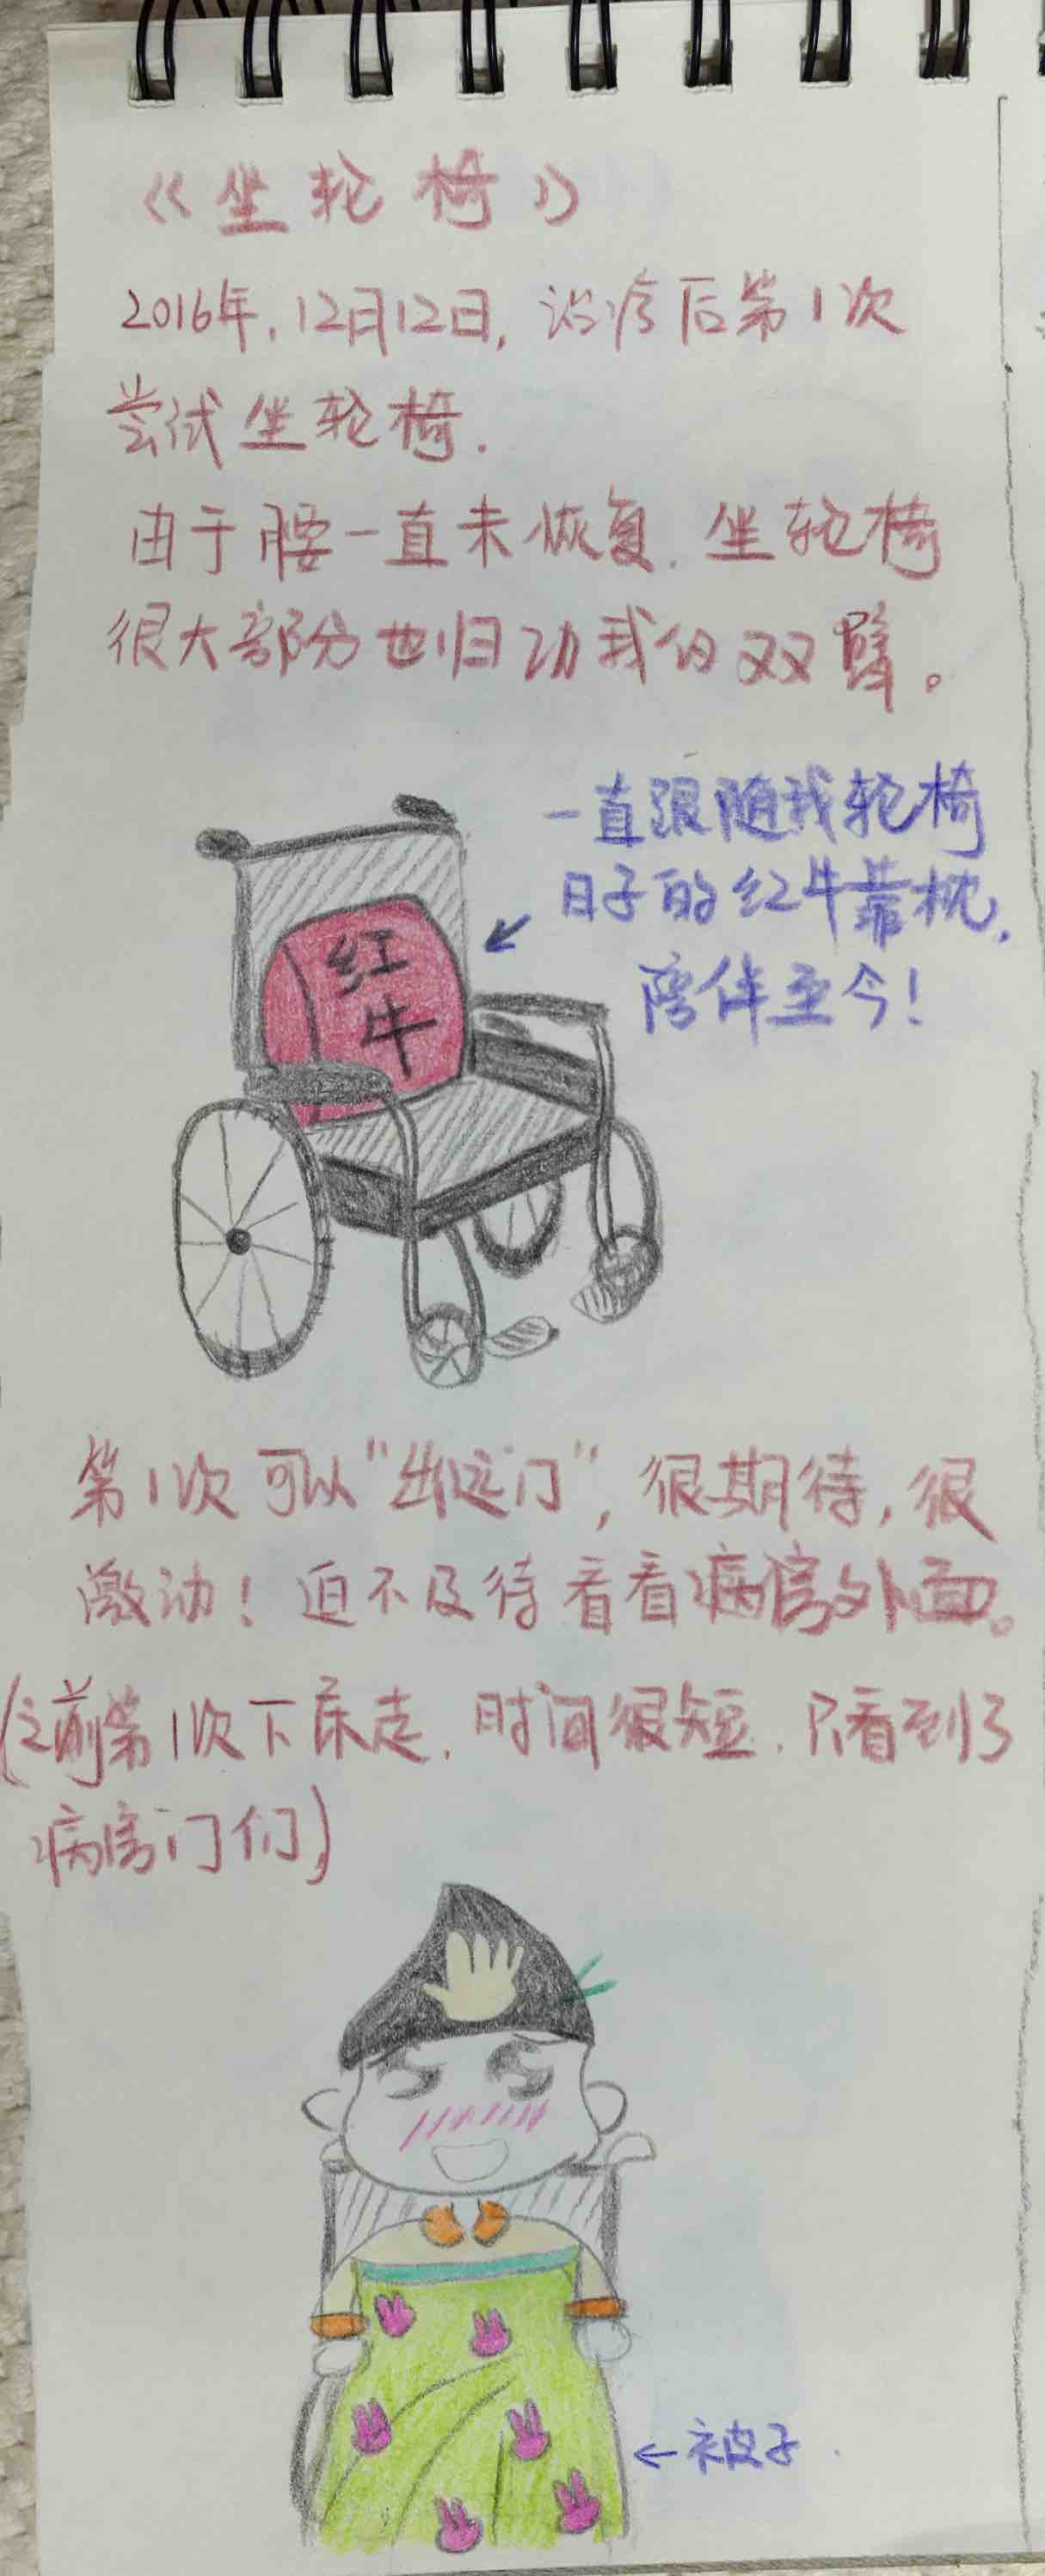 《坐轮椅》
2016年，12月12日，治疗后第1次
尝试坐轮椅．
由于腰一直未恢复．坐轮椅
很大部分也归功我的双臂。
一直跟随我轮椅
日子的红牛靠枕，
陪伴至今！
红
牛
第1次可以“出远门”，很期待，很
激动！迫不及待看看病房外面。
（之前第1次下床走．时间很短．只看到了
病房门们）
←被子．